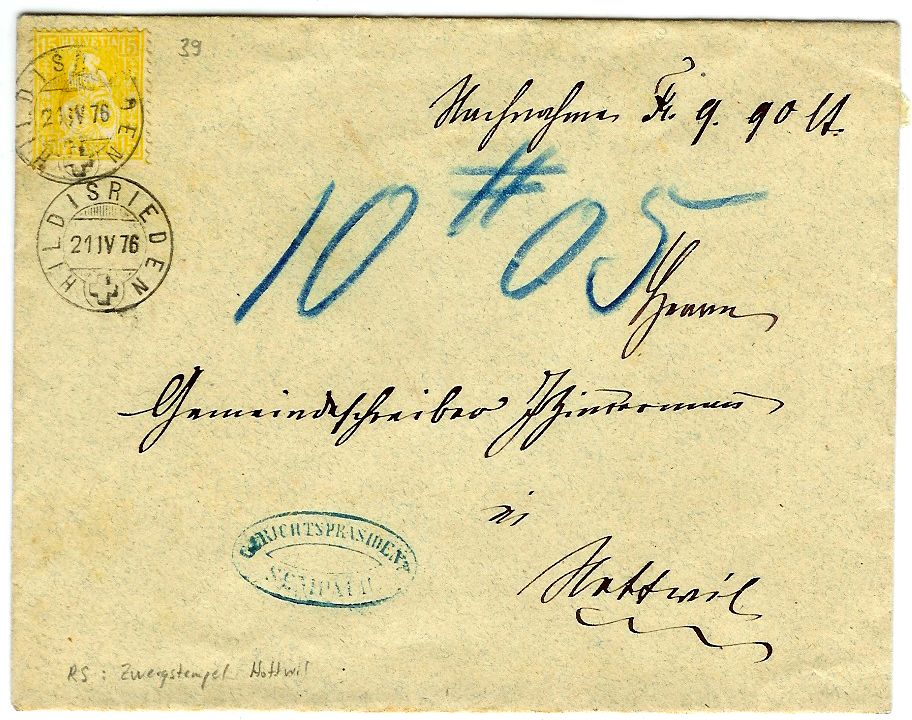 15 HELVETIA 15
HILDISRIEDEN
21 IV 76
39
Nachnahme Fr. 9. 90 Ct.
HILDISRIEDEN
21 IV 76
10 # 05
Herrn
Gemeindeschreiber Zimmermann
in
Nottwil
GERICHTSPRÄSIDENT
SEMPACH
RS : Zwergstempel Nottwil